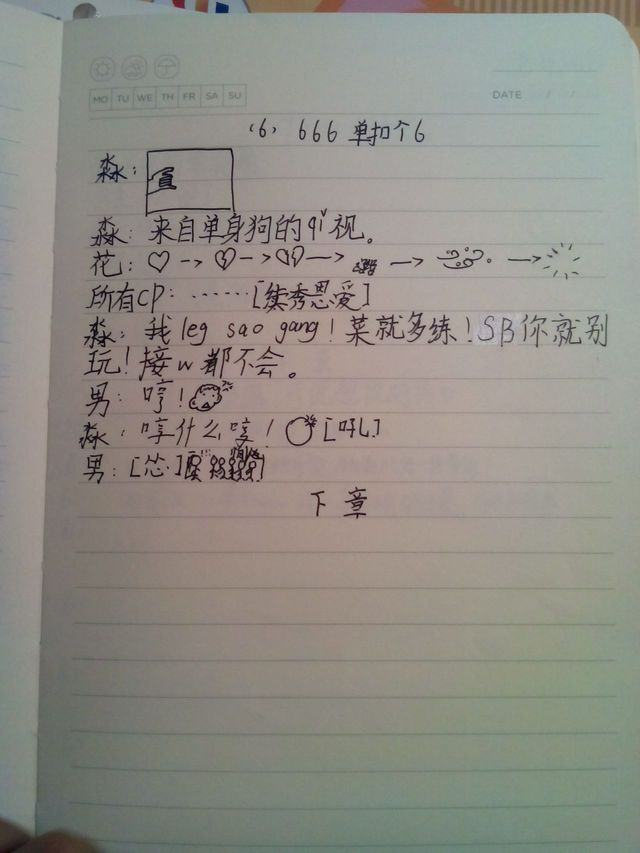 MO TU WE TH FR SA SU
DATE / /
(6) 666 单扣个6
淼:
淼: 来自单身狗的qǐ视。
花: -> -> -> -> ->
所有CP: ······[续秀恩爱]
淼: 我leg sao gang!菜就多练!SB你就别
玩!接w都不会。
男: 哼!
淼: 哼什么哼!
男: [怂]
下章